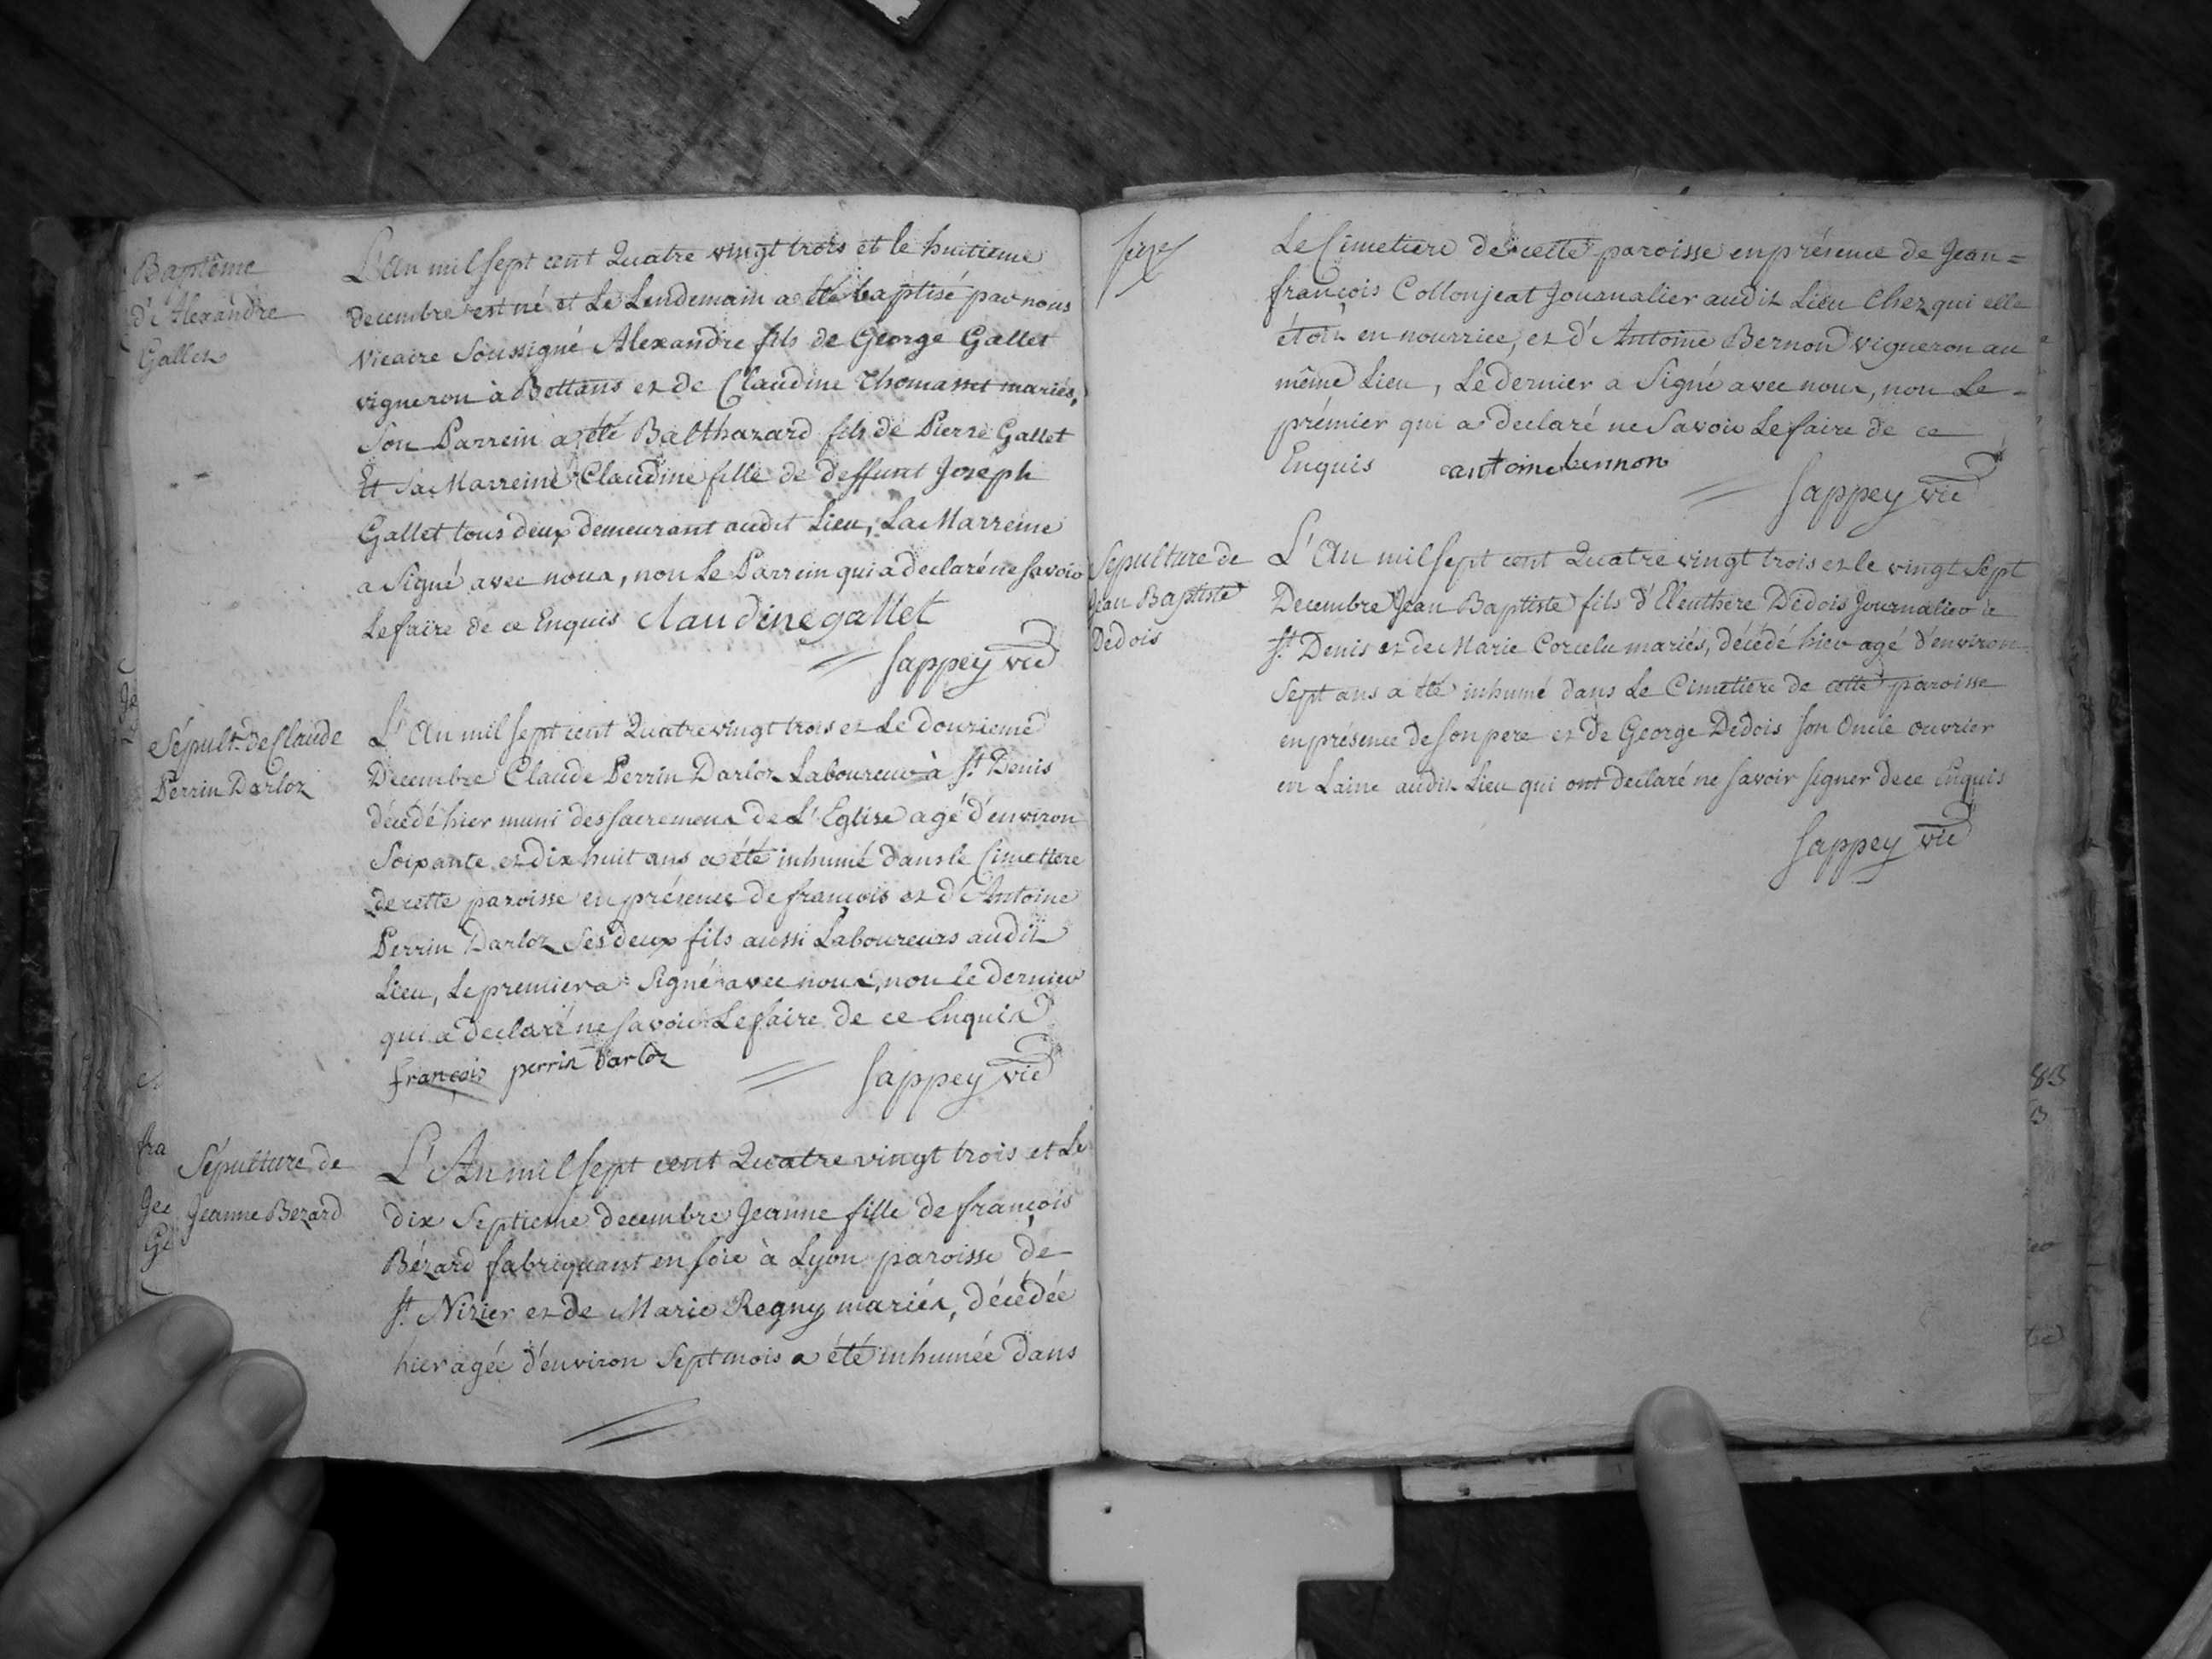 Baptême
d'Alexandre
Gallet
L'An mil sept cent Quatre vingt trois et le huitieme
decembre est né et Le Lendemain a été baptisé par nous
Vicaire Soussigné Alexandre fils de George Gallet
vigneron à Bottans et de Claudine Thomasset mariés,
Son Parrein a été Balthazard fils de Pierre Gallet
Et sa Marreine Claudine fille de deffunt Joseph
Gallet tous deux demeurant audit Lieu, La Marreine
a Signé avec nous, non Le Parrein qui a declaré ne savoir
Le faire de ce Enquis claudine gallet
Sappey vic
Sépult. de Claude
Perrin Darloz
L'An mil sept cent Quatre vingt trois et Le douzieme
Decembre Claude Perrin Darloz Laboureur à St Denis
décédé hier muni des sacremens de L'Eglise agé d'environ
Soixante et dix huit ans a été inhumé dans le Cimetiere
de cette paroisse en présence de françois et d'Antoine
Perrin Darloz Ses deux fils aussi Laboureurs audit
Lieu, Le premier a Signé avec nous, non le dernier
qui a declaré ne savoir Le faire de ce Enquis
françois perrin darloz
Sappey vic
Sépulture de
Jeanne Bezard
L'An mil sept cent Quatre vingt trois et Le
dix Septieme decembre Jeanne fille de françois
Bézard fabriquant en soie à Lyon paroisse de
St Nizier et de Marie Regny mariés, décédée
hier agée d'environ Sept mois a été inhumée dans
seize
Le Cimetiere de cette paroisse en présence de Jean=
françois Collonjeat Journalier audit Lieu Chez qui elle
étoit en nourrice, et d'Antoine Bernon vigneron au
même Lieu, Le dernier a Signé avec nous, non Le
prémier qui a declaré ne Savoir Le faire de ce
Enquis antoine bernnon
Sappey vic
Sepulture de
Jean Baptiste
Dedois
L'An mil sept cent Quatre vingt trois et le vingt Sept
Decembre Jean Baptiste fils d'Eleuthere Dedois Journalier à
St Denis et de Marie Corcelu mariés, décédé hier agé d'environ
Sept ans a été inhumé dans Le Cimetiere de cette paroisse
en présence de son pere et de George Dedois son Oncle ouvrier
en Laine audit Lieu qui ont declaré ne savoir signer de ce Enquis
Sappey vic